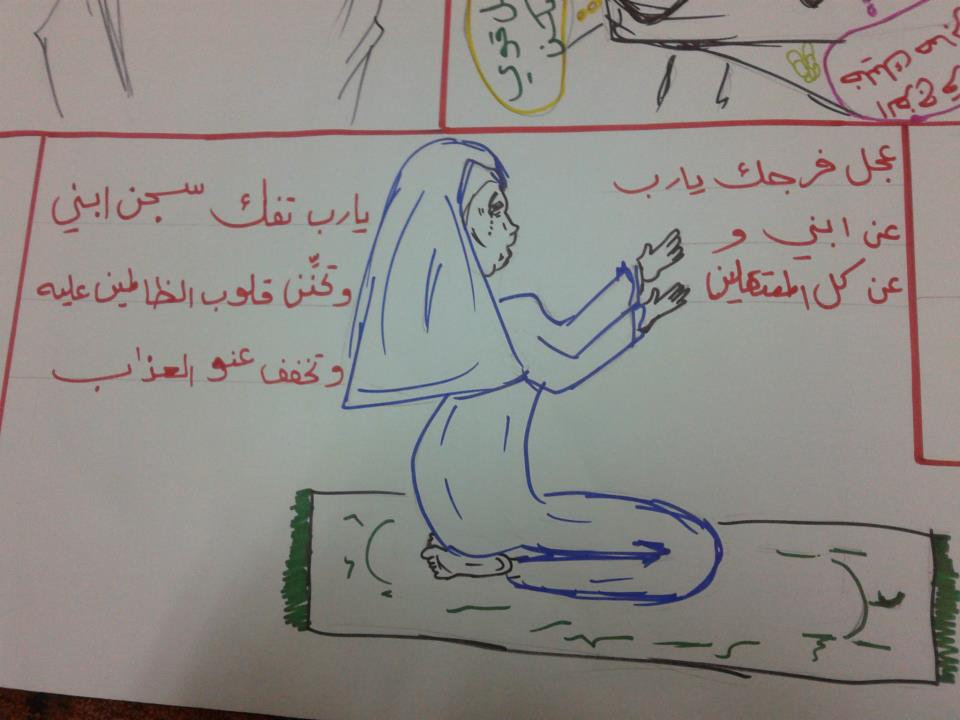 ل قوي
يكن
عجل فرجك يارب
عن ابني و
عن كل المعتقلين
يارب تفك سجن ابني
وتحنّن قلوب الظالمين عليه
وتخفف عنو العزاب